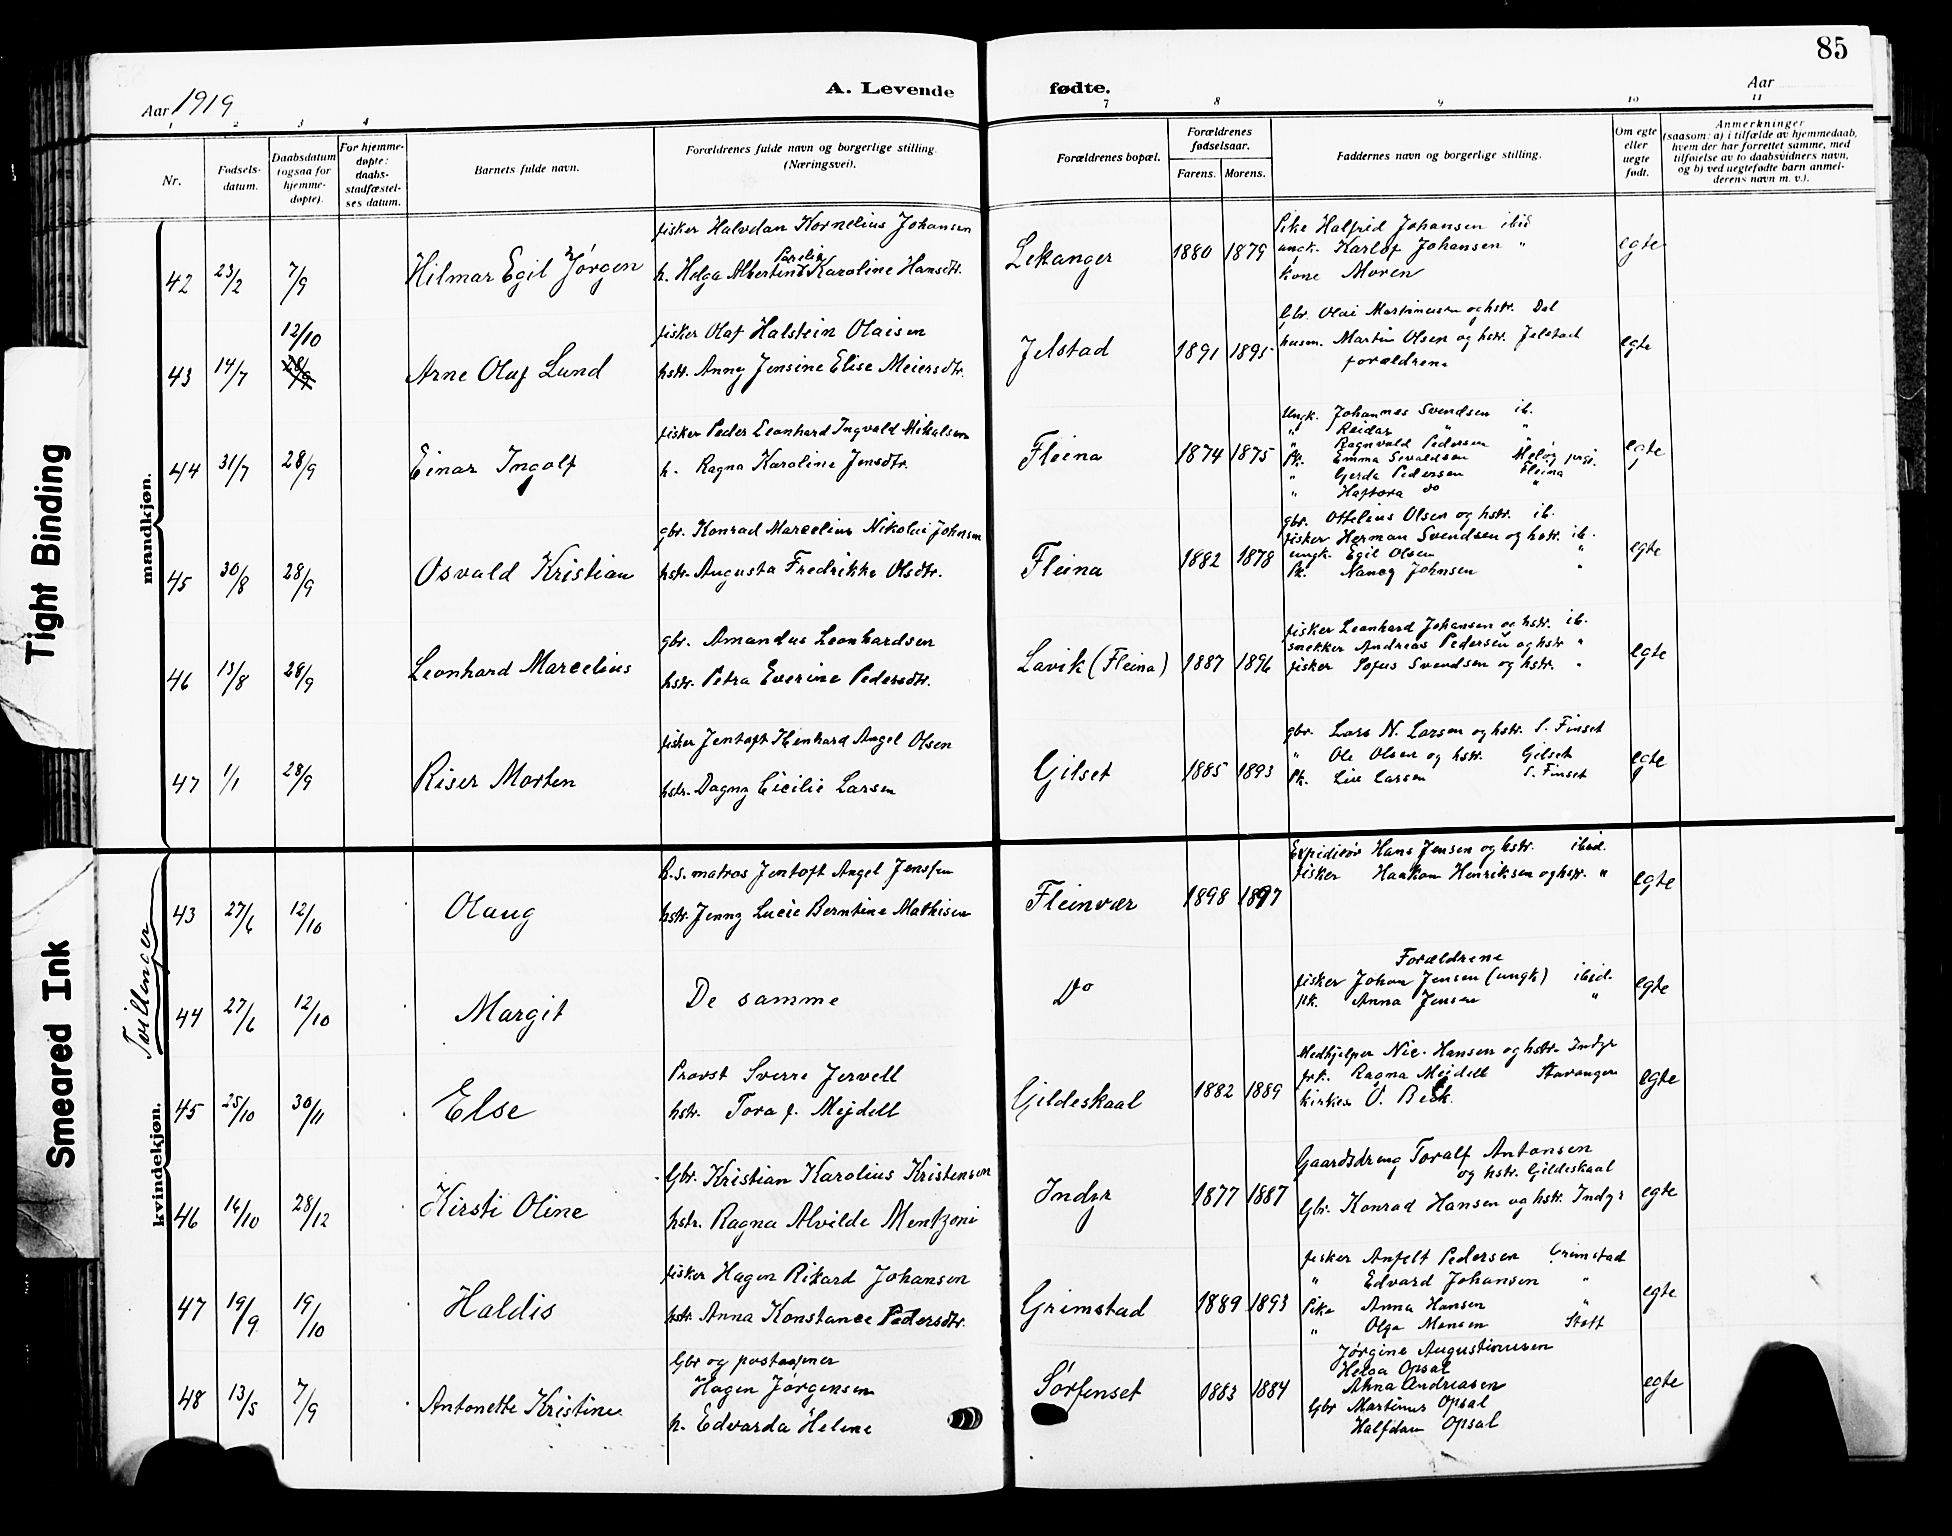 85
Aar 1919
A. Levende fødte.
Aar
1 2 3 4 7 8 9 10 11
Nr.
Fødsels-
datum.
Daabsdatum
(ogsaa for
hjemme-
døpte).
For hjemme-
døpte:
daabs-
stadfæstel-
ses datum.
Barnets fulde navn.
Forældrenes fulde navn og borgerlige stilling.
(Næringsvei).
Forældrenes bopæl.
Forældrenes
fødselsaar.
Farens. Morens.
Faddernes navn og borgerlige stilling.
Om egte
eller
uegte
født.
Anmerkninger
(saasom: a) i tilfælde av hjemmedaab,
hvem der har forrettet samme, med
tilføielse av to daabsvidners navn,
og b) ved uegtefødte barn anmel-
derens navn m. v.).
Tight Binding
Smeared Ink
mandkjøn.
42 23/2 7/9 Hilmar Egil Jørgen
fisker Halvdan Kornelius Johansen
h. Helga Albertine Karoline Hansdtr.
Lekanger 1880 1879
Pike Halfrid Johansen ibid
ungk. Karlof Johansen "
kone Moren
egte
43 14/7 12/10 28/9 Arne Olaf Lund
fisker Olaf Halstein Olaisen
hstr. Anny Jensine Elise Meiersdtr.
Jelstad 1891 1895
Gbr. Olai Martinusen og hstr. Dal
husm. Martin Olsen og hstr. Jelstad
forældrene
egte
44 31/7 28/9 Einar Ingolf
fisker Peder Leonhard Ingvald Mikalsen
h. Ragna Karoline Jensdtr.
Fleina 1874 1875
Ungk. Johannes Svendsen ib.
" Reidar " "
" Ragnvald Pedersen "
Pk. Emma Sivaldsen Meløy prgj.
" Gerda Pedersen Fleina
" Haftora do "
egte
45 30/8 28/9 Osvald Kristian
gbr. Konrad Marcelius Nikolai Johnsen
hstr. Augusta Fredrikke Olsdtr.
Fleina 1882 1878
gbr. Ottelius Olsen og hstr. ib.
fisker Herman Svendsen og hstr. ib.
ungk. Egil Olsen "
Pk. Nancy Johnsen "
egte
46 13/8 28/9 Leonhard Marcelius
gbr. Amandus Leonhardsen
hstr. Petra Everine Pedersdtr.
Lavik (Fleina) 1887 1896
fisker Leonhard Johansen og hstr. ib.
snekker Andreas Pedersen og hstr "
fisker Sofus Svendsen og hstr. "
egte
47 1/1 28/9 Riser Morten
fisker Jentoft Henhard Angel Olsen
hstr. Dagny Cicilie Larsen
Gilset 1885 1893
gbr. Lars N. Larsen og hstr. S. Finset
" Ole Olsen og hstr. Gilset
Pk. Live Larsen S. Finset
egte
kvindekjøn.
Tvillinger
43 27/6 12/10 Olaug
R.s. matros Jentoft Angel Jenssen
hstr. Jenny Lucie Berntine Mathisen
Fleinvær 1898 1897
Expeditør Hans Jensen og hstr. ibid.
fisker Haakon Henriksen og hstr. "
egte
44 27/6 12/10 Margit
De samme
Do
Forældrene
fisker Johan Jensen (ungk) ibid.
pk. Anna Jensen "
egte
45 25/10 30/11 Else
Provst Sverre Jervell
hstr. Tora f. Mejdell
Gildeskaal 1882 1889
Medhjelper Nic. Hansen og hstr. Indyr
frk. Ragna Mejdell Stavanger
kirkes. O. Beck.
egte
46 16/10 28/12 Kirsti Oline
Gbr. Kristian Karolius Kristensen
hstr. Ragna Alvilde Mentzoni
Indyr 1877 1887
Gaardsdreng Toralf Antonsen
og hstr. Gildeskaal
Gbr. Konrad Hansen og hstr. Indyr
egte
47 19/9 19/10 Haldis
fisker Hagen Rikard Johansen
hstr. Anna Konstance Pedersdtr.
Grimstad 1889 1893
fisker Anfelt Pedersen Grimstad
" Edvard Johansen "
Pike Anna Hansen "
" Olga Monsen Støtt
egte
48 13/5 7/9 Antonette Kristine
Gbr og postaapner
Hagen Jørgensen
h. Edvarda Helene
Sørfenset 1883 1884
Jørgine Augustinusen
Helga Opsal
Anna Andreasen
Gbr Martinus Opsal
Halfdan Opsal
egte